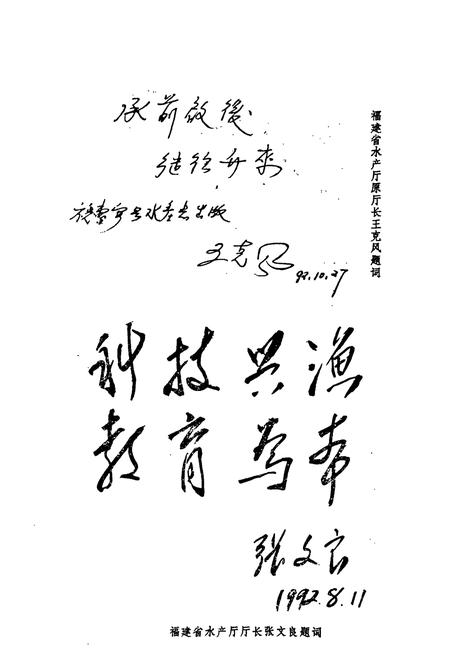 承前啟後
继往开來
水产志出版
王克风
92.10.27
福建省水产厅原厅长王克风题词
科技兴渔
教育為本
张文良
1992.8.11
福建省水产厅厅长张文良题词